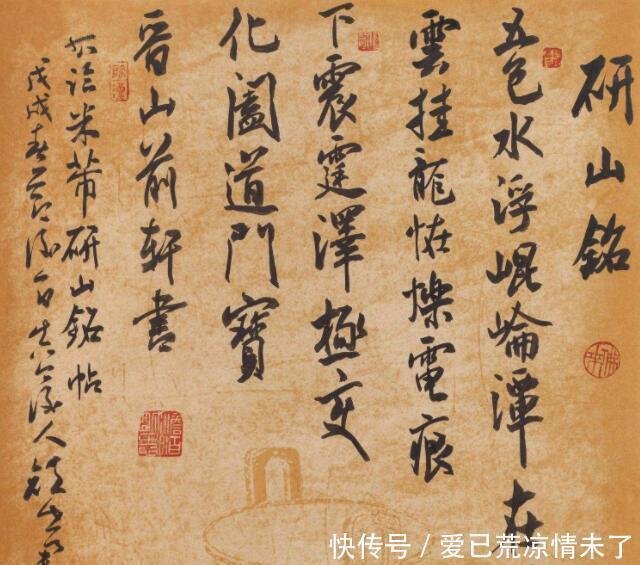 研山銘
五色水浮崐崘潭在
雲挂龍怪爍電痕
下震霆澤極变
化闔道門寶
晉山前軒書
米芾研山銘帖
戊戌春節後
快传号／爱已荒凉情未了